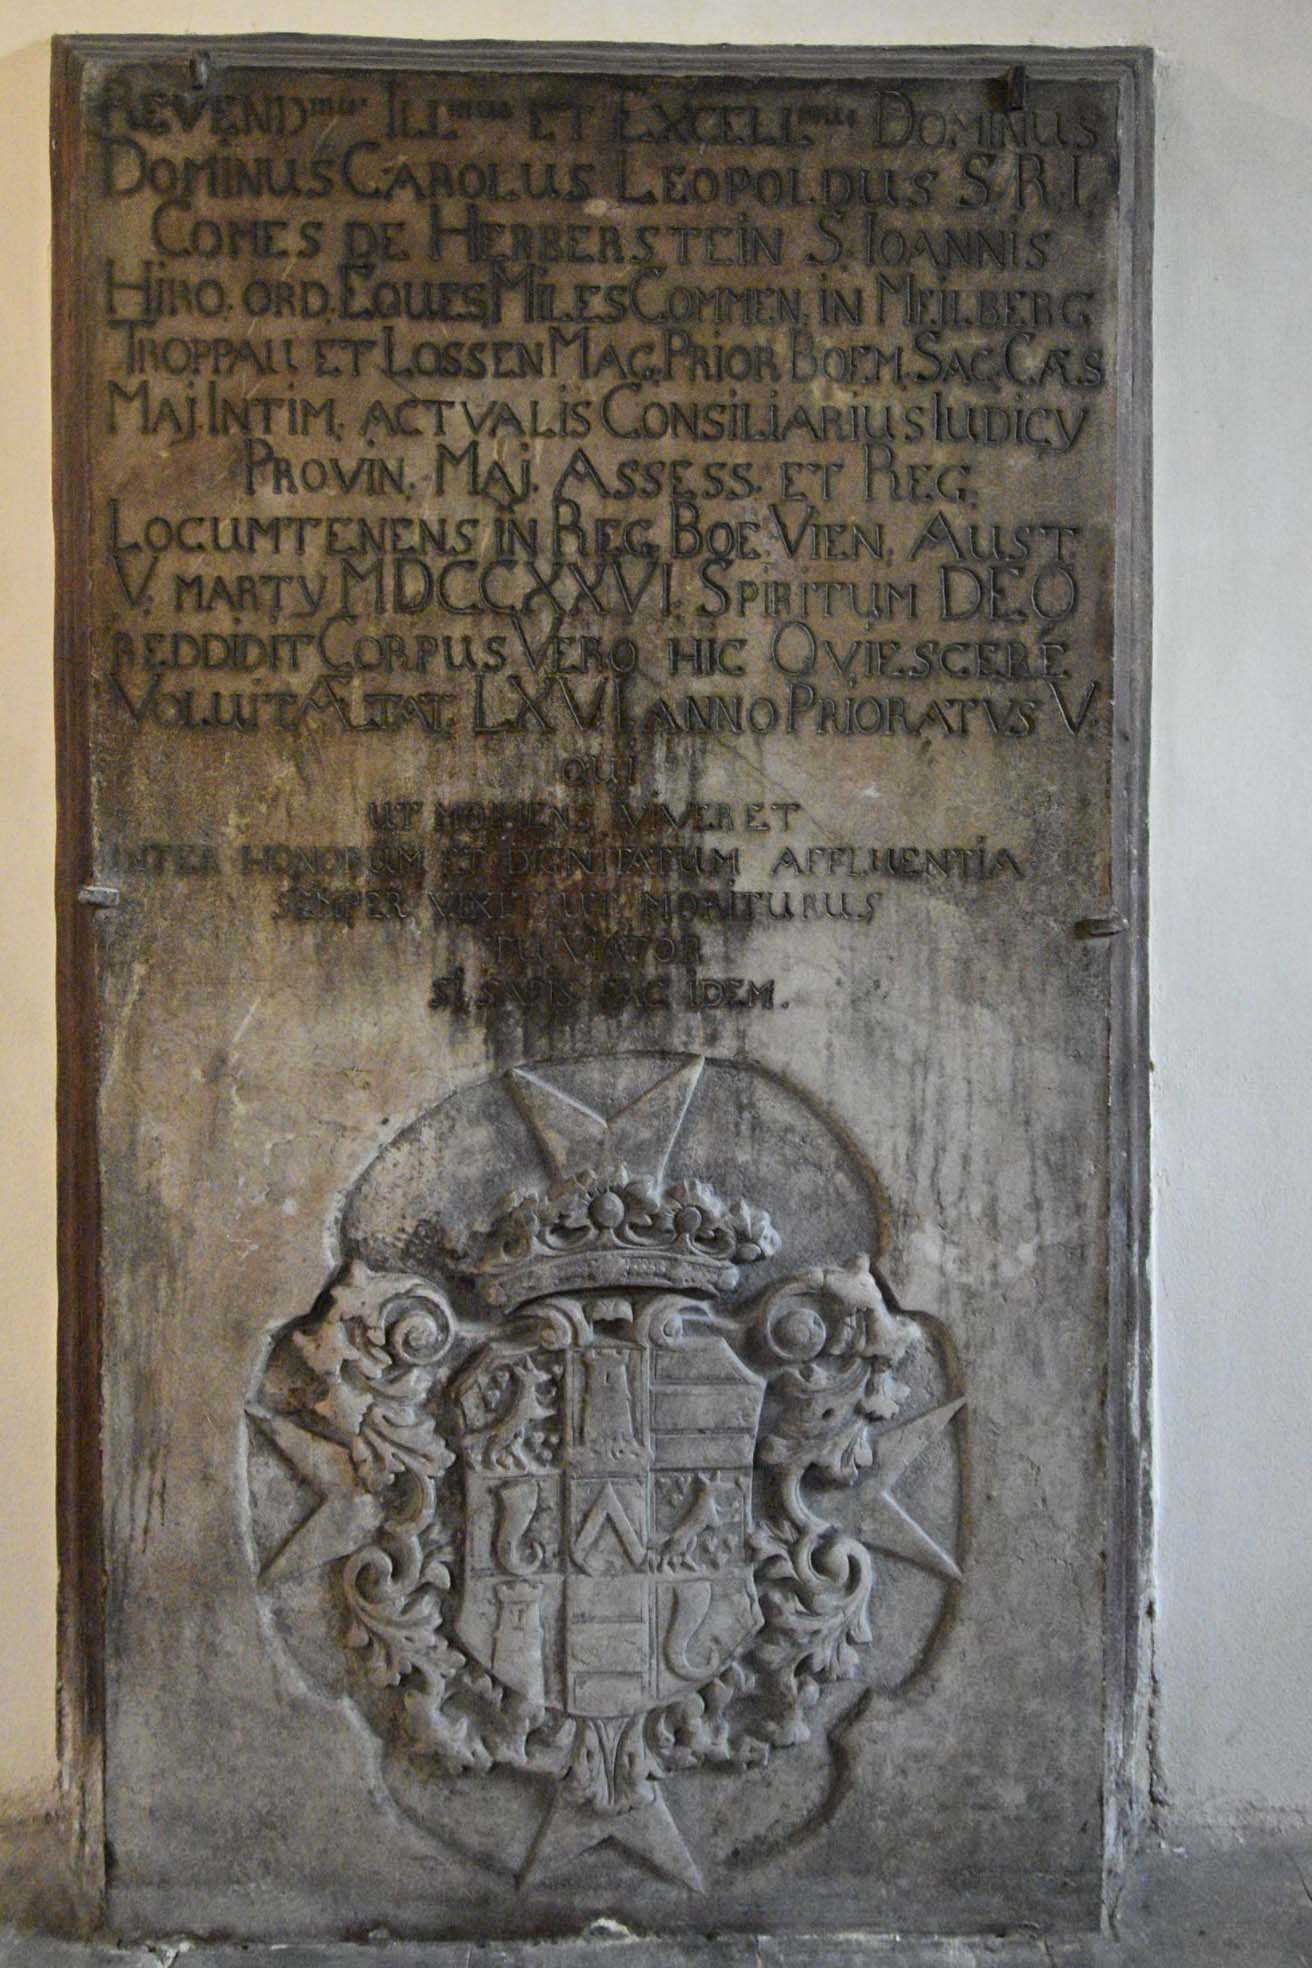 REVEND.mus ILL.mus ET EXCELL.mus DOMINUS
DOMINUS CAROLUS LEOPOLDUS S.R.I.
COMES DE HERBERSTEIN S. IOANNIS
HIRO. ORD. EQUES MILES COMMEN. IN MEILBERG
TROPPAU ET LOSSEN MAG. PRIOR BOEM. SAC. CÆS
MAJ. INTIM. ACTVALIS CONSILIARIUS IUDICY
PROVIN. MAJ. ASSESS. ET REG.
LOCUMTENENS IN REG. BOE. VIEN. AUST
V. MARTY MDCCXXVI. SPIRITUM DEO
REDDIDIT CORPUS VERO HIC QVIESCERE
VOLUIT ÆLTAT. LXVI ANNO PRIORATVS V.
QUI
UT MORIENS VIVERET
INTER HONORUM ET DIGNITATUM AFFLUENTIA
SEMPER VIXIT UT MORITURUS
TU VIATOR
SI SAPIS FAC IDEM.